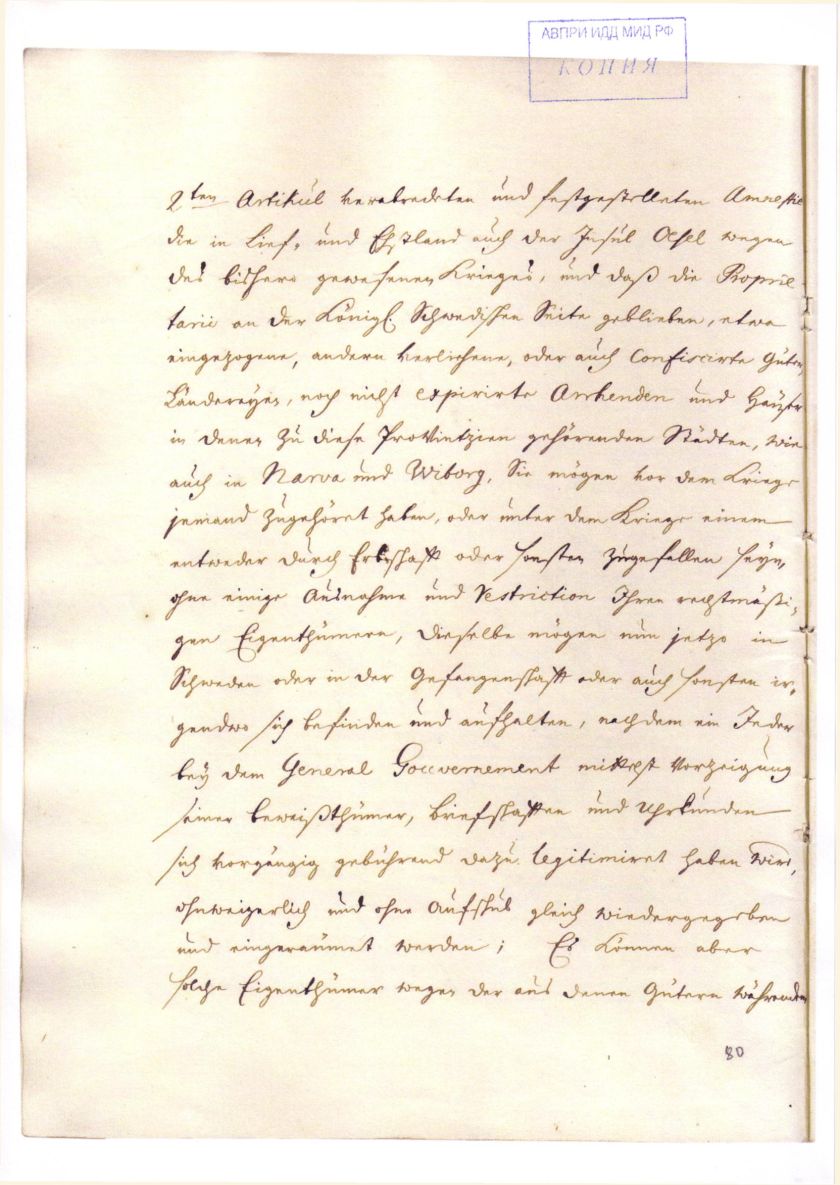 АВПРИ ИДД МИД РФ
КОПИЯ
2ten Artikul verabredeten und festgestelleten Amnestie
die in Lief- und Ehstland auch der Insul Oesel wegen
des bishero gewesenen Krieges, und daß die Proprie-
tarii an der Königl. Schwedischen Seite geblieben, etwa
eingezogene, andern verliehene, oder auch Confiscirte Güter,
Ländereyen, noch nicht expirirte Arrhenden und Häuser
in denen zu diese Provintzien gehörenden Städten, wie
auch in Narva und Wiborg, Sie mögen vor dem Kriege
jemand zugehöret haben, oder unter dem Kriege einem
entweder durch Erbschafft oder sonsten zugefallen seyn,
ohne einige Ausnahme und Restriction Ihren rechtmäßi-
gen Eigenthümern, dieselbe mögen nun jetzo in
Schweden oder in der Gefangenschafft oder auch sonsten ir-
gendwo sich befinden und aufhalten, nachdem ein Jeder
bey dem General Gouvernement mittelst Vorzeigung
seiner beweißthümer, Briefschafften und Uhrkunden
sich vorgängig gebührend dazu legitimiret haben wird,
ohnweigerlich und ohne Aufschub gleich wiedergegeben
und eingeräumet werden; Es können aber
solche Eigenthümer wegen der aus denen Gütern währenden
80